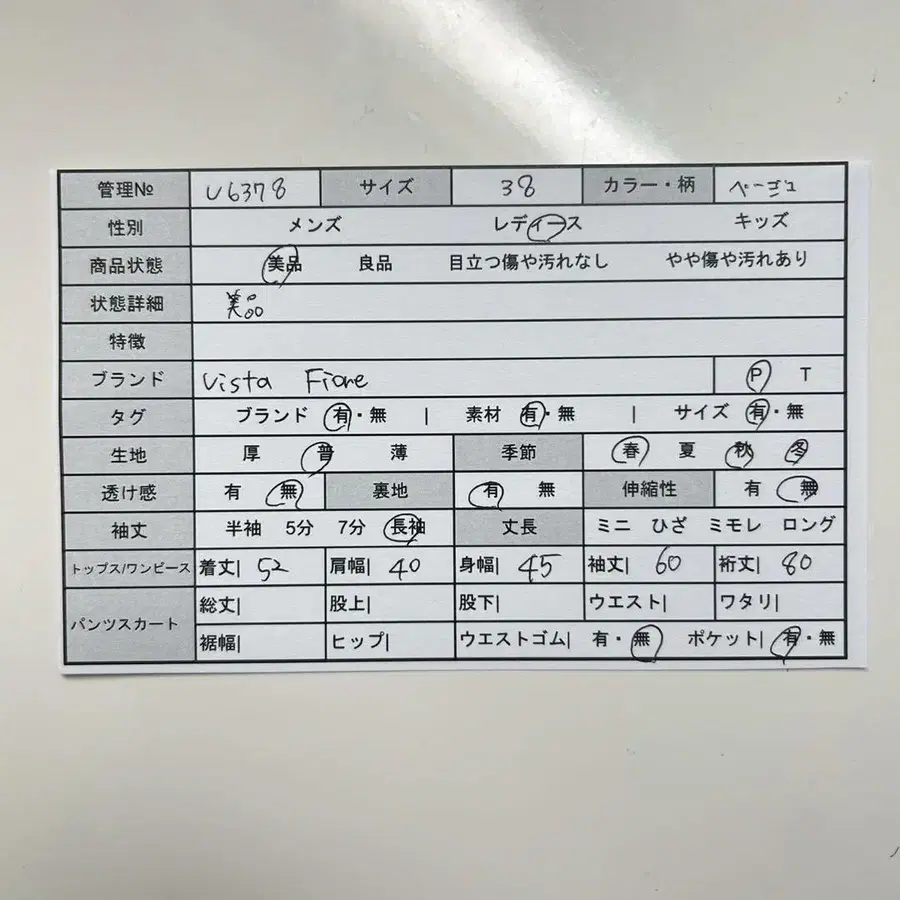 管理№ U6378 サイズ 38 カラー・柄 ベージュ
性別 メンズ レディース キッズ
商品状態 美品 良品 目立つ傷や汚れなし やや傷や汚れあり
状態詳細 美品
特徴
ブランド Vista Fiore P T
タグ ブランド 有・無 | 素材 有・無 | サイズ 有・無
生地 厚 普 薄 季節 春 夏 秋 冬
透け感 有 無 裏地 有 無 伸縮性 有 無
袖丈 半袖 5分 7分 長袖 丈長 ミニ ひざ ミモレ ロング
トップス/ワンピース 着丈| 52 肩幅| 40 身幅| 45 袖丈| 60 裄丈| 80
パンツスカート 総丈| 股上| 股下| ウエスト| ワタリ|
裾幅| ヒップ| ウエストゴム| 有・無 ポケット| 有・無